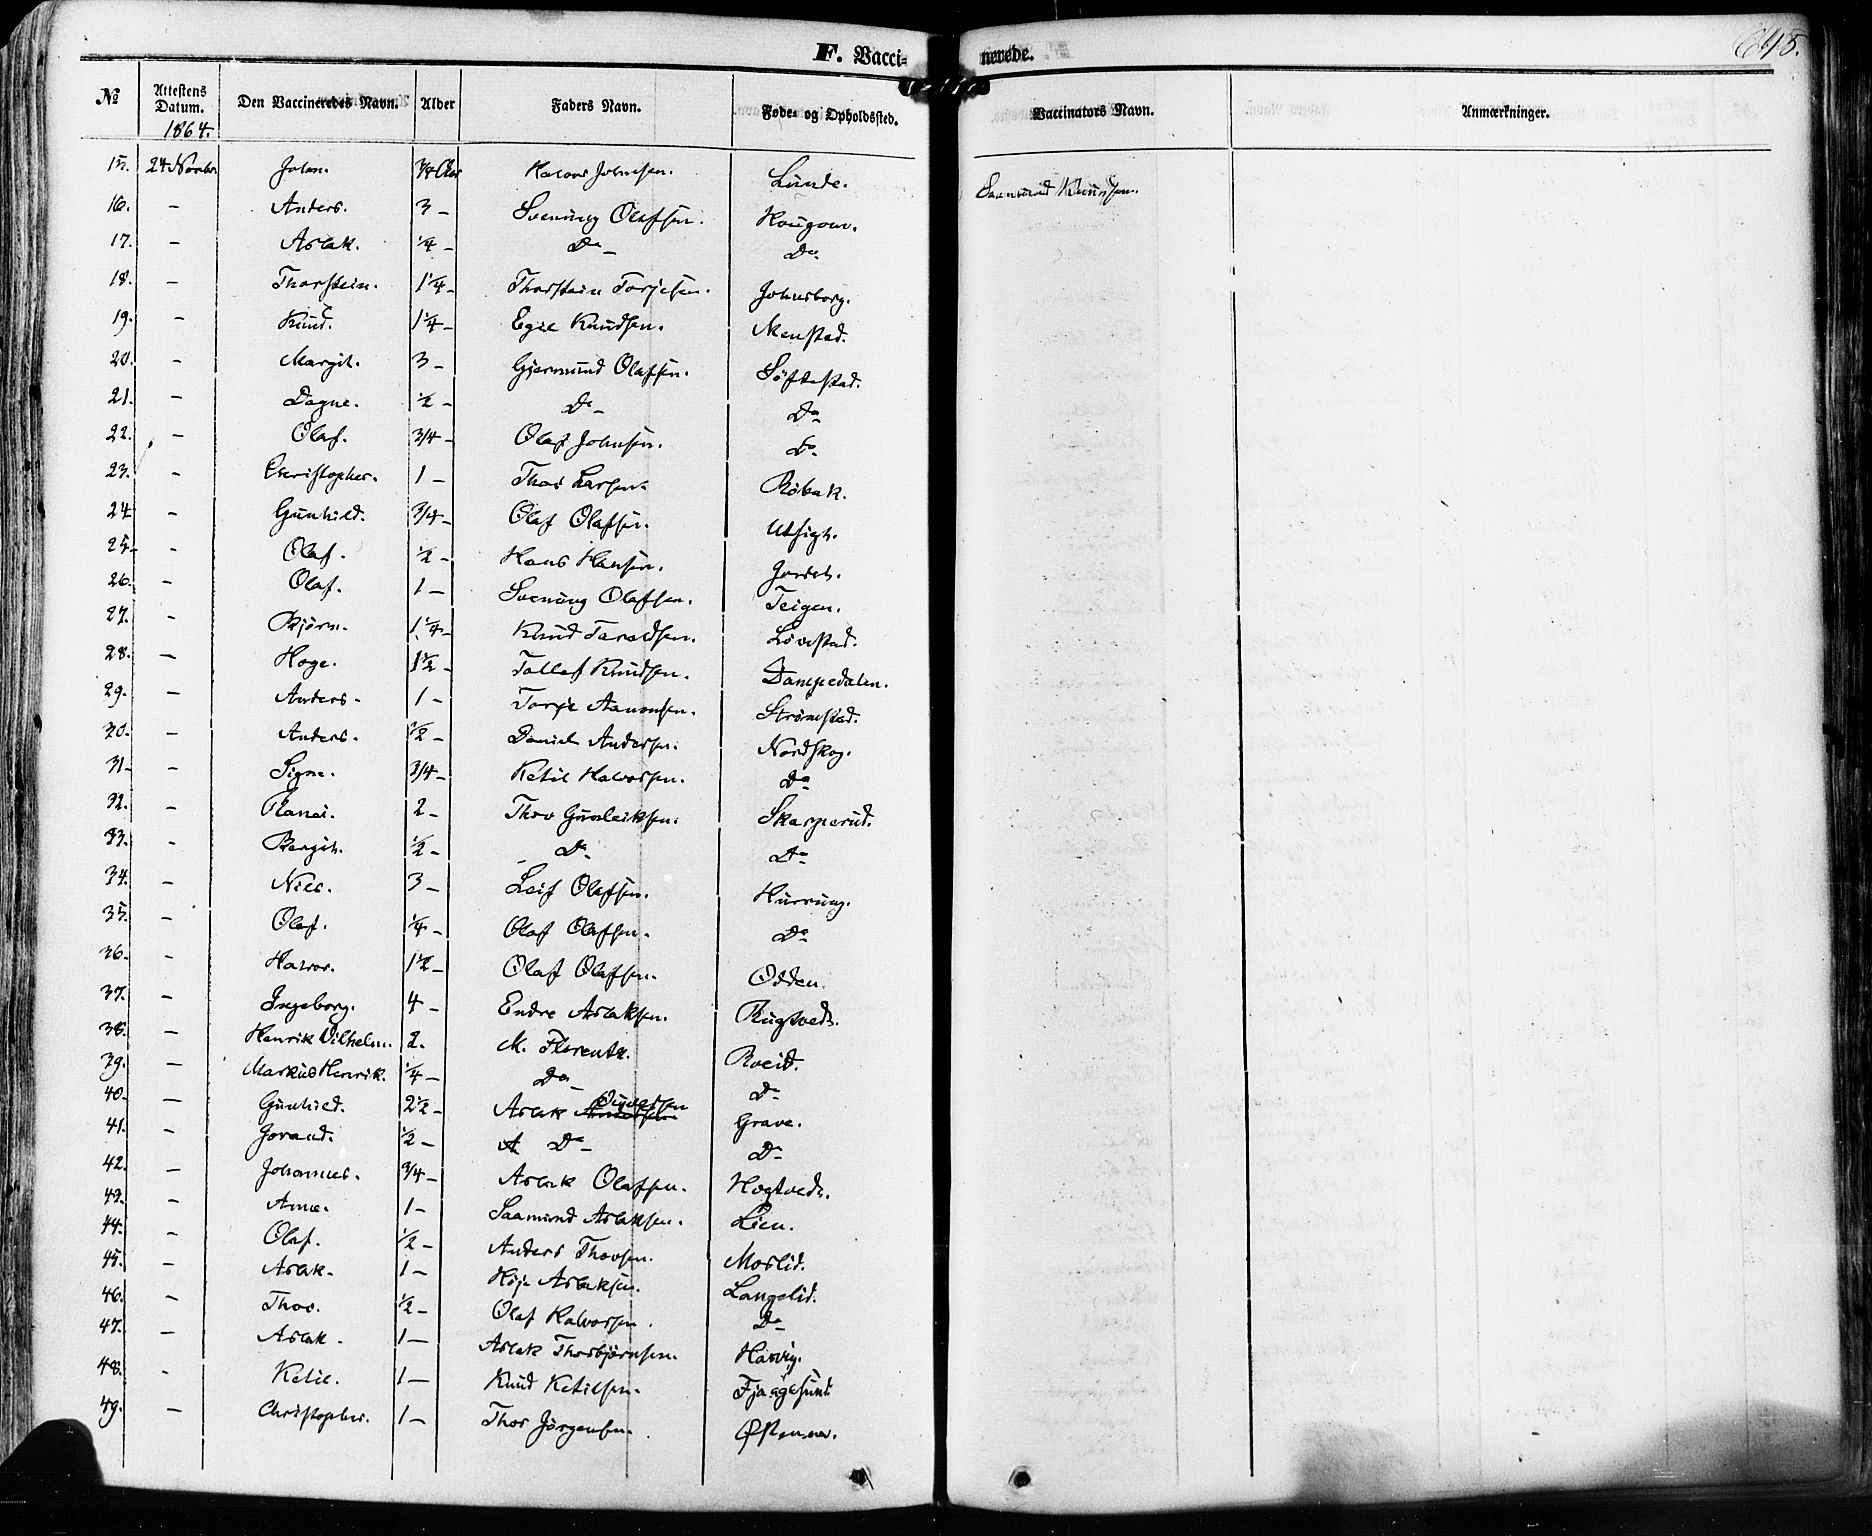 F. Vacci- nerede. 645.
№ Attestens Datum. Den Vaccineredes Navn. Alder Faders Navn. Føde- og Opholdssted. Vaccinators Navn. Anmærkninger.
1864.
15. 24 Novbr. John. 3/4 Aar Halvor Johnsen. Lunde. Saamund Knudsen.
16. - Anders. 3 - Svenung Olafsen. Haugom.
17. - Aslak. 1/4 - Do - Do
18. - Thorstein. 1 1/4 - Thorstein Torjesen. Johnsborg.
19. - Knud. 1 1/4 - Egil Knudsen. Menstad.
20. - Margit. 3 - Gjermund Olafsen. Søftestad.
21. - Dagne. 1/2 - Do - Do
22. - Olaf. 3/4 - Olaf Johnsen. Do
23. - Christopher. 1 - Thor Larsen. Robak.
24 - Gunhild. 3/4 - Olaf Olafsen. Utsigt.
25. - Olaf. 1/2 - Hans Hansen. Jordet.
26. - Olaf. 1 - Svenung Olafsen. Teigen.
27. - Bjørn. 1 1/4 - Knud Taraldsen. Lovestad.
28. - Hoge. 1 1/2 - Tallef Knudsen. Dampedalen.
29. - Anders. 1 - Torje Aamonsen. Strømstad.
30. - Anders. 1/2 - Daniel Andersen. Nordskog.
31 - Signe. 3/4 - Ketil Halvorsen. Do
32. - Ranei. 2 - Thov Gunleiksen. Skarperud.
33. - Bergit. 1/2 - Do - Do
34. - Niels. 3 - Leif Olafsen. Hurrung.
35. - Olaf. 1/4 - Olaf Olafsen. Do
36. - Halvor. 1 1/2 - Olaf Olafsen. Odden.
37. - Ingeborg. 4 - Endre Aslaksen. Rugtvedt.
38. - Henrik Vilhelm. 2. M. Florentz. Roeid.
39. - Markus Henrik. 1/4 - Do - Do
40. - Gunhild. 2 1/2 - Aslak Andersen Grave.
41. - Jorand. 1/2 - A Do - Do
42. - Johannes. 3/4 - Aslak Olafsen. Hogtvedt.
43. - Anne. 1 - Saamund Aslaksen. Lien.
44. - Olaf. 1/2 - Anders Thovsen. Moslid.
45. - Aslak. 1 - Høje Aslaksen. Langelid.
46. - Thor. 1/2 - Olaf Halvorsen. Do
47. - Aslak. 1 - Aslak Thorbjørnsen.
48. - Ketil. 1 - Knud Ketilsen. Fjaagesund
49. - Christopher. 1 - Thor Jørgensen.